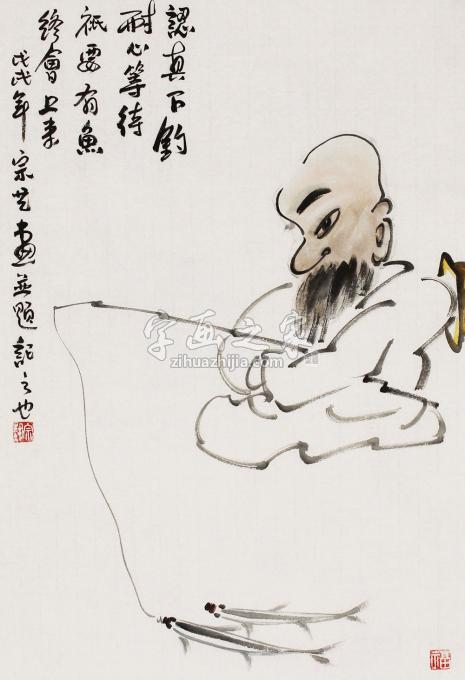 認真下釣
耐心等待
祇要有魚
終會上来
戊戌年宗畫並題記之也
字画之家
zihuazhijia.com